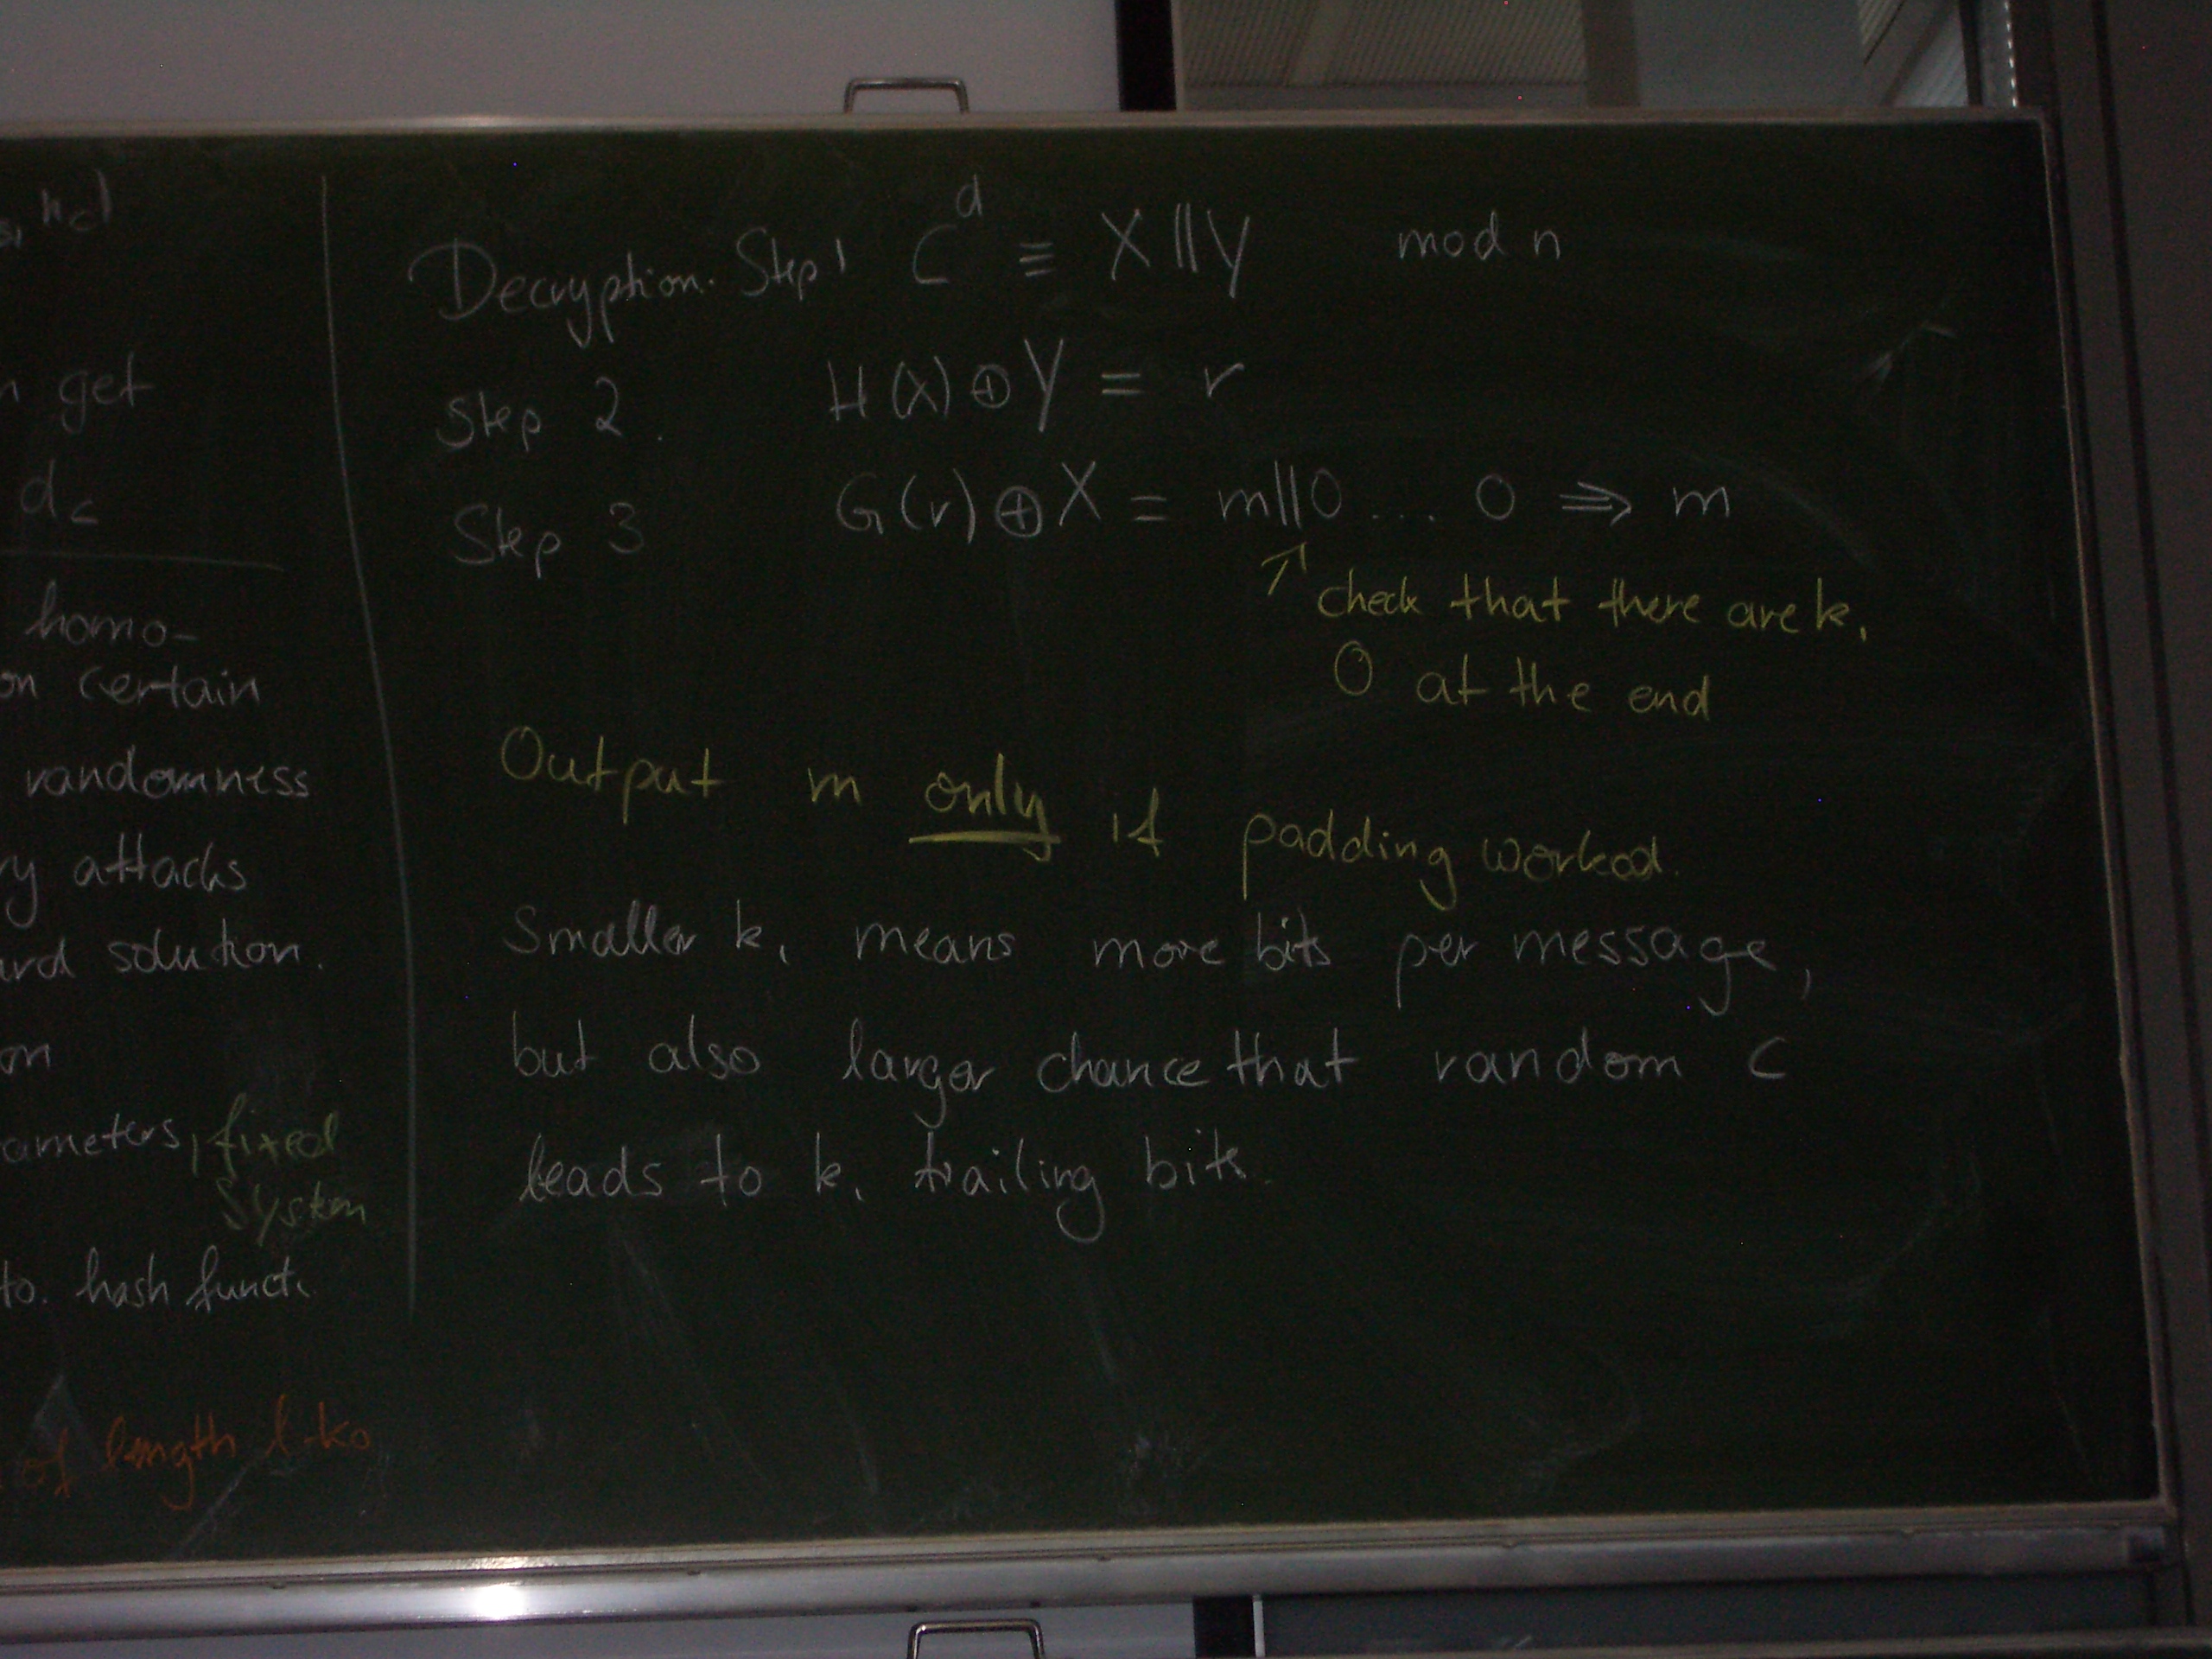 get
d_c
homo-
on certain
randomness
attacks
solution.
on
ameters, fixed
System
to. hash funct.
of length l-k₀
Decryption. Step 1 C^d ≡ X||Y mod n
Step 2. H(X)⊕Y = r
Step 3 G(r)⊕X = m||0 .... 0 ⇒ m
↑ check that there are k₁
0 at the end
Output m only if padding worked.
Smaller k₁ means more bits per message,
but also larger chance that random C
leads to k₁ trailing bits.